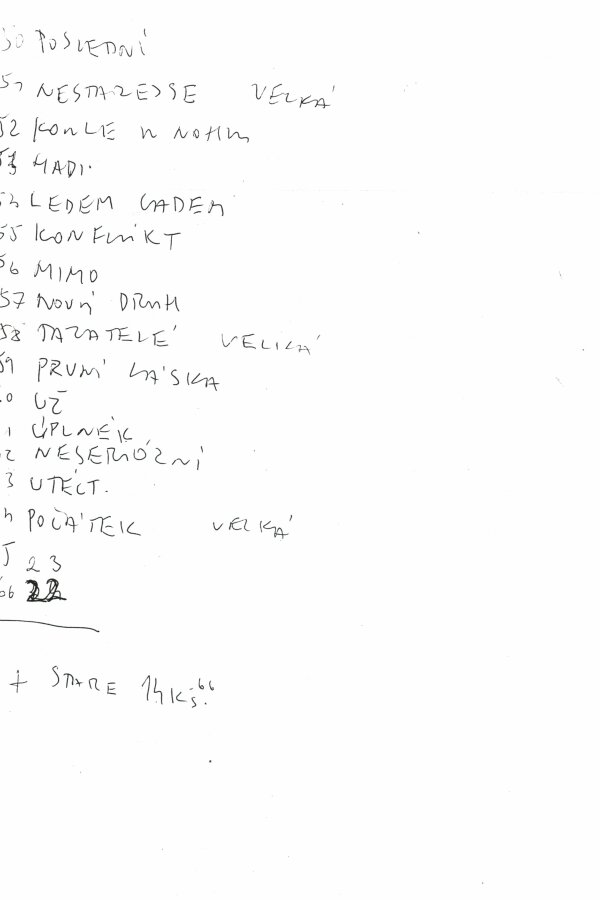 50 POSLEDNÍ
51 NESTAREJSE VELKÁ
52 KOULE U NOHU
53 HADI.
54 LEDEM LADEM
55 KONFLIKT
56 MIMO
57 NOVÝ DRUH
58 TAZATELÉ VELIKÁ
59 PRVNÍ LÁSKA
0 UŽ
1 ÚPLNĚK
2 NESERIÓZNÍ
3 UTÉCT.
4 POČÁTEK VELKÁ
5 23
66 22
+ STARE 14 KS. 66